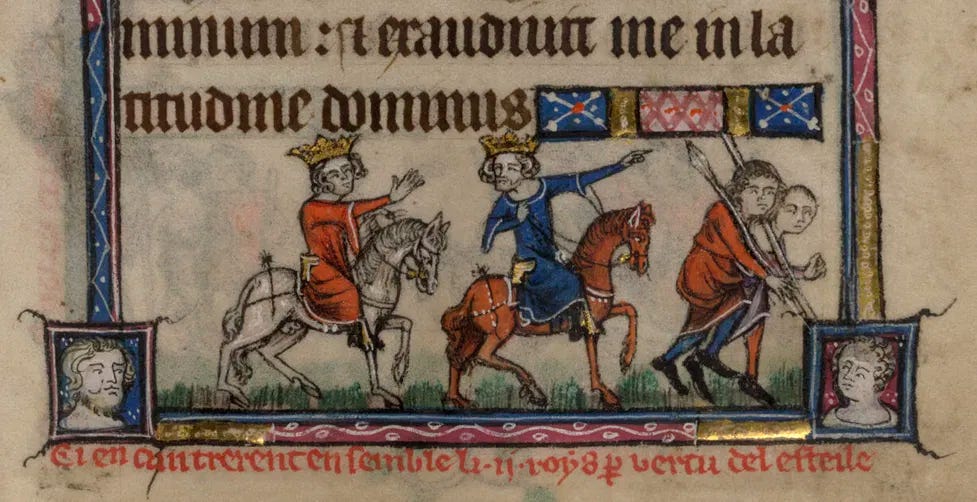 minum : et exaudiuit me in la
titudine dominus
Ci en cuntrerent en semble li · ii · roys ꝑ vertu del esteile